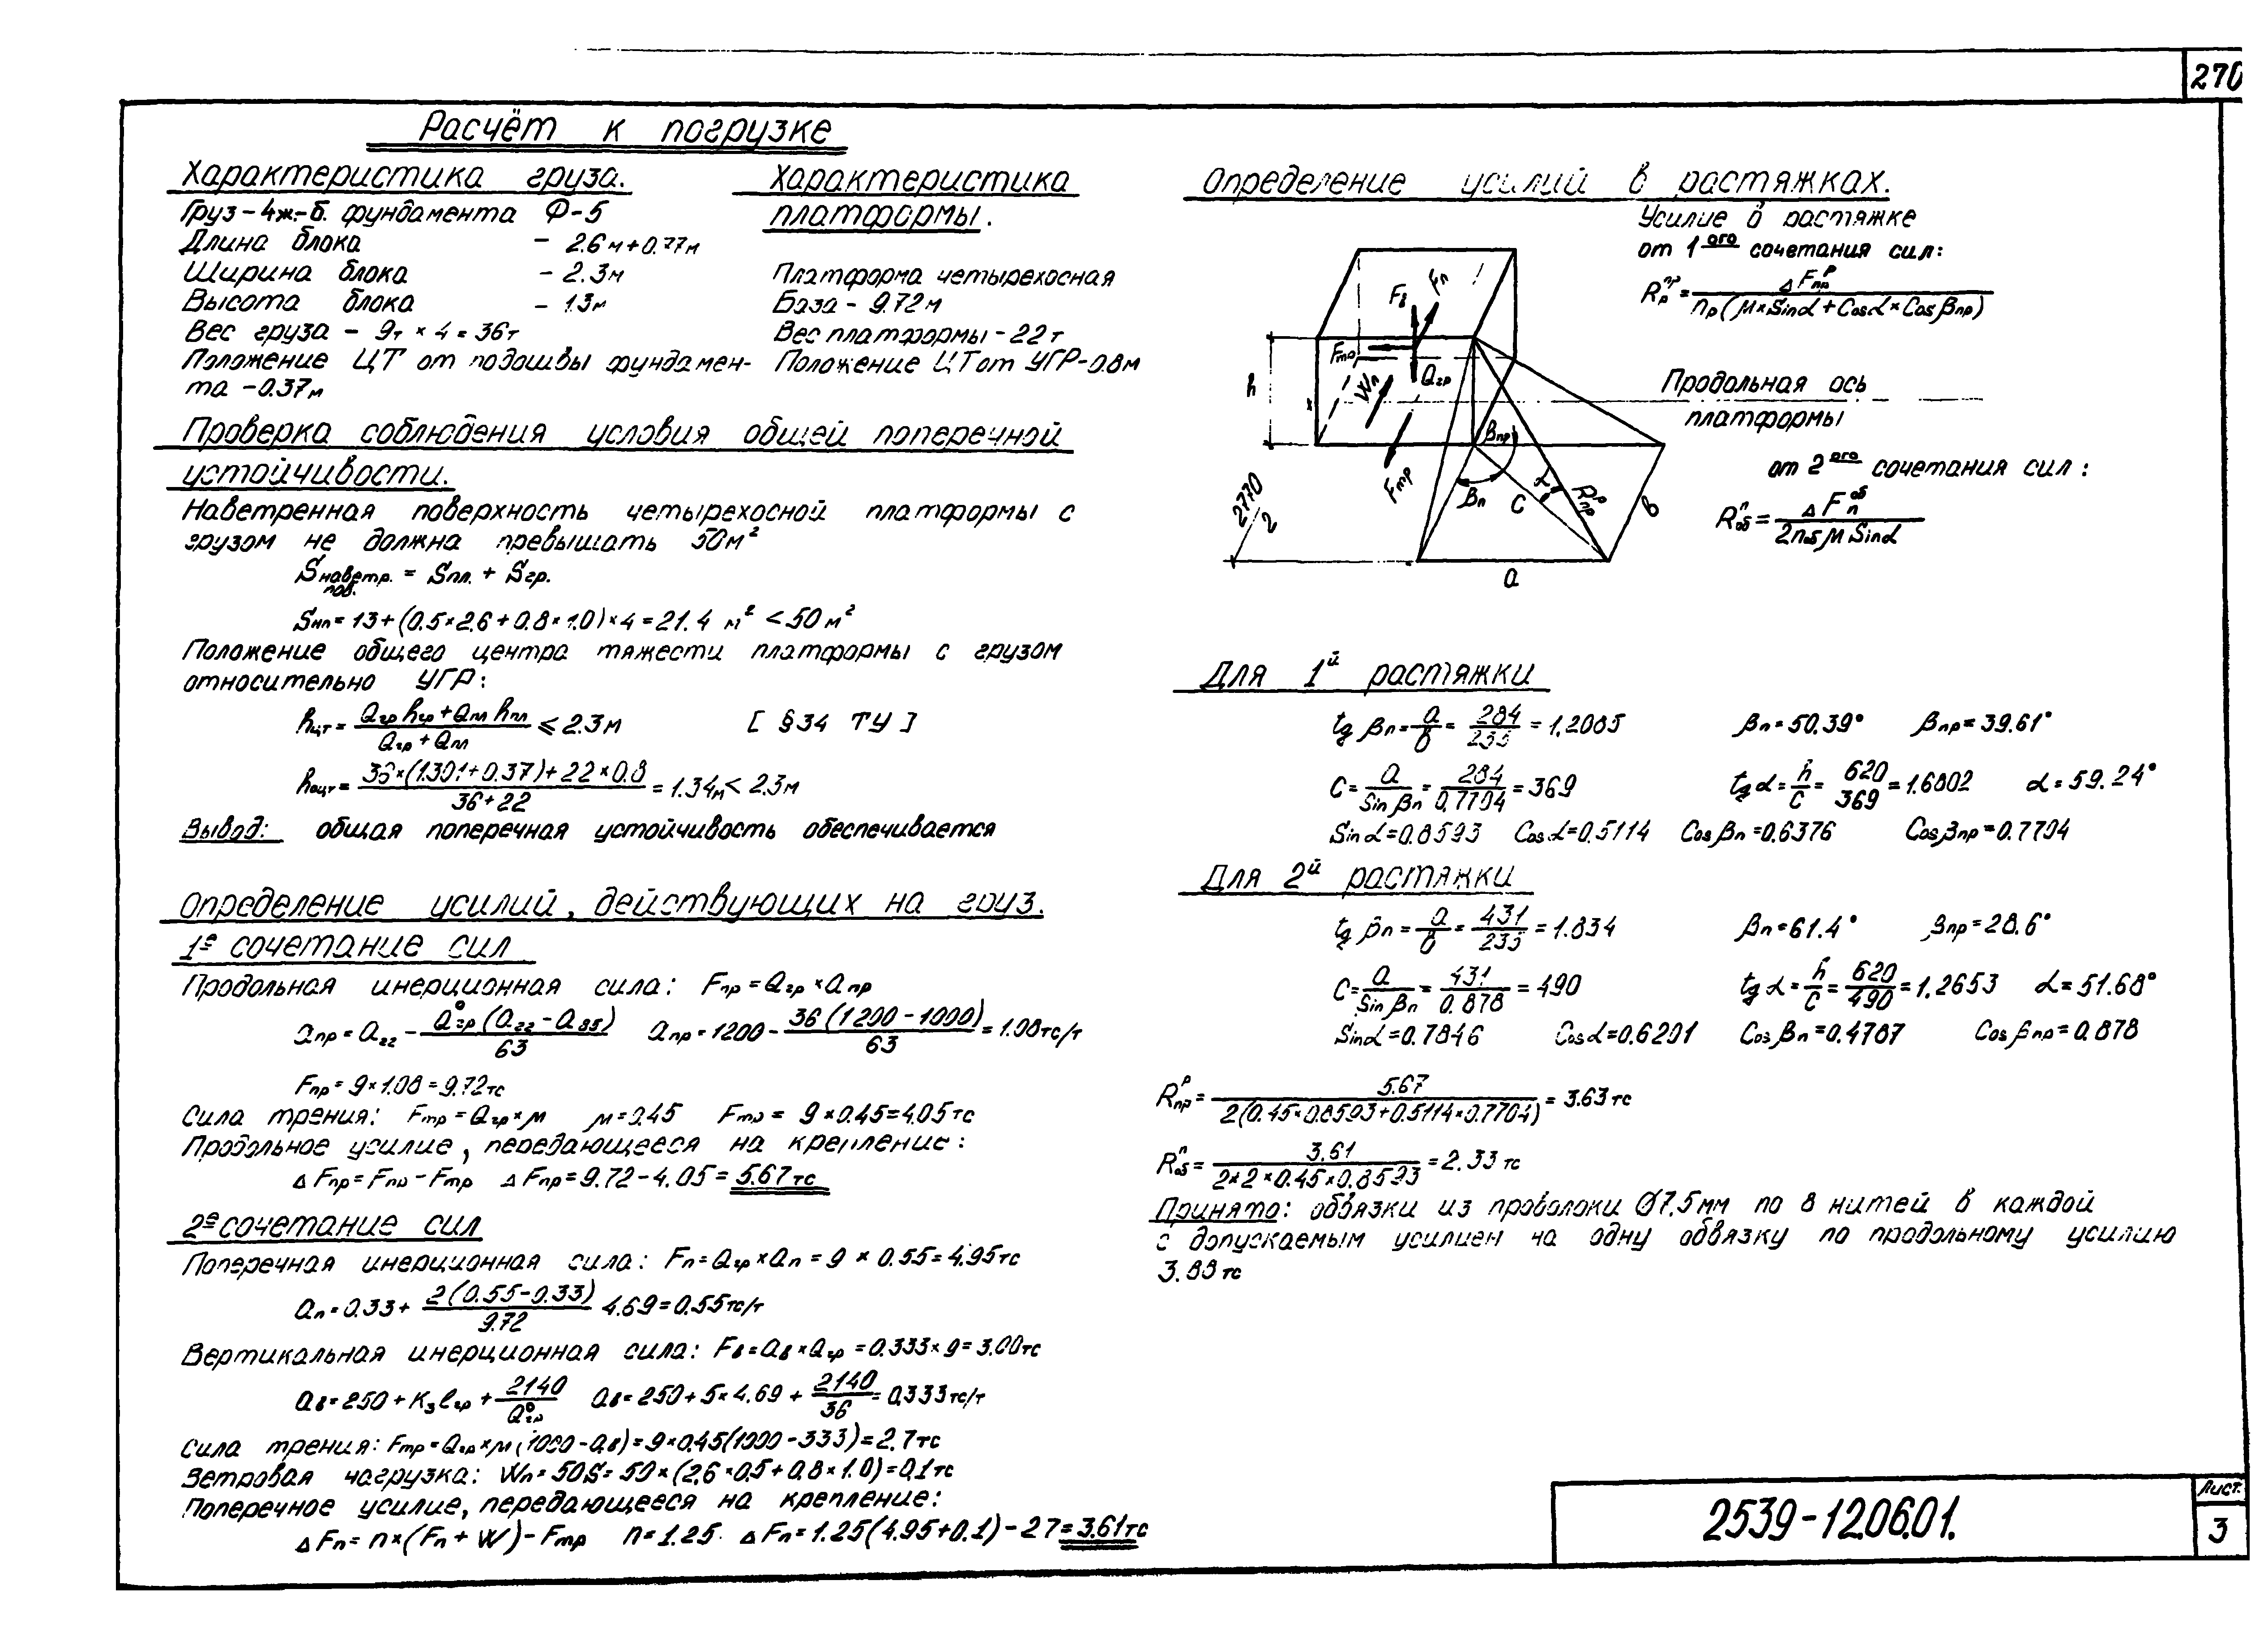 270
Расчёт к погрузке
Характеристика груза.
Груз – 4ж.-б. фундамента Ф-5
Длина блока – 2.6м+0.77м
Ширина блока – 2.3м
Высота блока – 1.3м
Вес груза – 9т × 4 = 36т
Положение ЦТ от подошвы фундамен-
та – 0.37м
Характеристика
платформы.
Платформа четырехосная
База – 9.72м
Вес платформы – 22т
Положение ЦТ от УГР – 0.8м
Проверка соблюдения условия общей поперечной
устойчивости.
Наветренная поверхность четырехосной платформы с
грузом не должна превышать 50м²
Sнаветр. пов. = Sпл. + Sгр.
Sнп = 13+(0.5×2.6+0.8×1.0)×4=21.4 м² < 50 м²
Положение общего центра тяжести платформы с грузом
относительно УГР:
hцт = (Qгр hгр + Qпл hпл) / (Qгр + Qпл) ⩽ 2.3м [ §34 ТУ ]
hоцт = (36×(1.301+0.37)+22×0.8) / (36+22) = 1.34м < 2.3м
Вывод: общая поперечная устойчивость обеспечивается
Определение усилий, действующих на груз.
1е сочетание сил
Продольная инерционная сила: Fпр = Qгр × aпр
aпр = a22 – Q°гр (a22 – a85) / 63 aпр = 1200 – 36 (1200 – 1000) / 63 = 1.08тс/т
Fпр = 9×1.08 = 9.72тс
Сила трения: Fтр = Qгр × м м = 0.45 Fтр = 9 × 0.45 = 4.05тс
Продольное усилие, передающееся на крепление:
Δ Fпр = Fпр – Fтр Δ Fпр = 9.72 – 4.05 = 5.67тс
2е сочетание сил
Поперечная инерционная сила: Fп = Qгр × aп = 9 × 0.55 = 4.95тс
aп = 0.33 + 2(0.55 – 0.33) / 9.72 4.69 = 0.55тс/т
Вертикальная инерционная сила: Fв = aв × Qгр = 0.333 × 9 = 3.00тс
aв = 250 + K3 ℓгр + 2140 / Q°гр aв = 250 + 5 × 4.69 + 2140 / 36 = 0.333тс/т
Сила трения: Fтр = Qгр × м (1000 – aв) = 9 × 0.45(1000 – 333) = 2.7тс
Ветровая нагрузка: Wп = 50S = 50 × (2.6 × 0.5 + 0.8 × 1.0) = 0.1тс
Поперечное усилие, передающееся на крепление:
Δ Fп = n × (Fп + W) – Fтр n = 1.25 Δ Fп = 1.25(4.95+0.1) – 2.7 = 3.61тс
Определение усилий в растяжках.
Усилие в растяжке
от 1ого сочетания сил:
Rпрр = Δ Fпрр / nр (м × Sinα + Cosα × Cosβпр)
Fв
Fп
Fпр
Qгр
Wп
Fтр
h
βпр
βп
α
Rпрр
C
в
a
2770/2
Продольная ось
платформы
от 2ого сочетания сил:
Rпоб = Δ Fпоб / 2nоб м Sinα
Для 1й растяжки
tg βп = a/в = 284/235 = 1.2085 βп = 50.39° βпр = 39.61°
C = a / Sin βп = 284 / 0.7704 = 369 tg α = h/C = 620/369 = 1.6802 α = 59.24°
Sin α = 0.8593 Cos α = 0.5114 Cos βп = 0.6376 Cos βпр = 0.7704
Для 2й растяжки
tg βп = a/в = 431/235 = 1.834 βп = 61.4° βпр = 28.6°
C = a / Sin βп = 431 / 0.878 = 490 tg α = h/C = 620/490 = 1.2653 α = 51.68°
Sin α = 0.7846 Cos α = 0.6201 Cos βп = 0.4787 Cos βпр = 0.878
Rпрр = 5.67 / 2(0.45×0.8593+0.5114×0.7704) = 3.63тс
Rпоб = 3.61 / 2×2×0.45×0.8593 = 2.33тс
Принято: обвязки из проволоки Ø7.5мм по 8 нитей в каждой
с допускаемым усилием на одну обвязку по продольному усилию
3.88тс
2539-12.06.01.
Лист
3